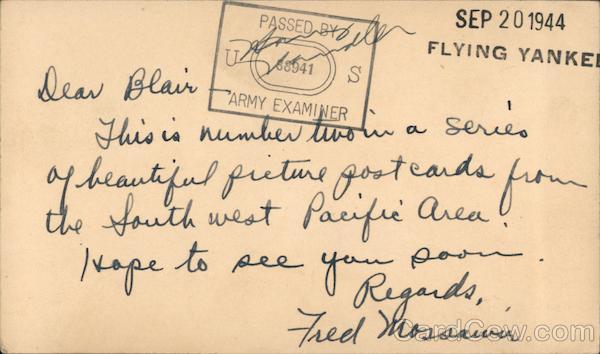 PASSED BY
U 88941 S
ARMY EXAMINER
SEP 20 1944
FLYING YANKEE
Dear Blair —
This is number two in a series
of beautiful picture postcards from
the South west Pacific Area.
Hope to see you soon.
Regards,
Fred
CardCow.com